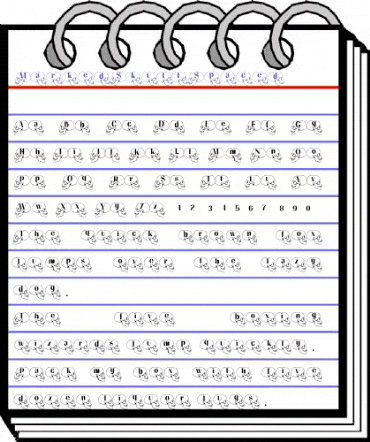 MarkedSkullSpaced
Aa Bb Cc Dd Ee Ff Gg
Hh Ii Jj Kk Ll Mm Nn Oo
Pp Qq Rr Ss Tt Uu Vv
Ww Xx Yy Zz 1 2 3 4 5 6 7 8 9 0
The quick brown fox
jumps over the lazy
dog.
The five boxing
wizards jump quickly.
Pack my box with five
dozen liquor jugs.